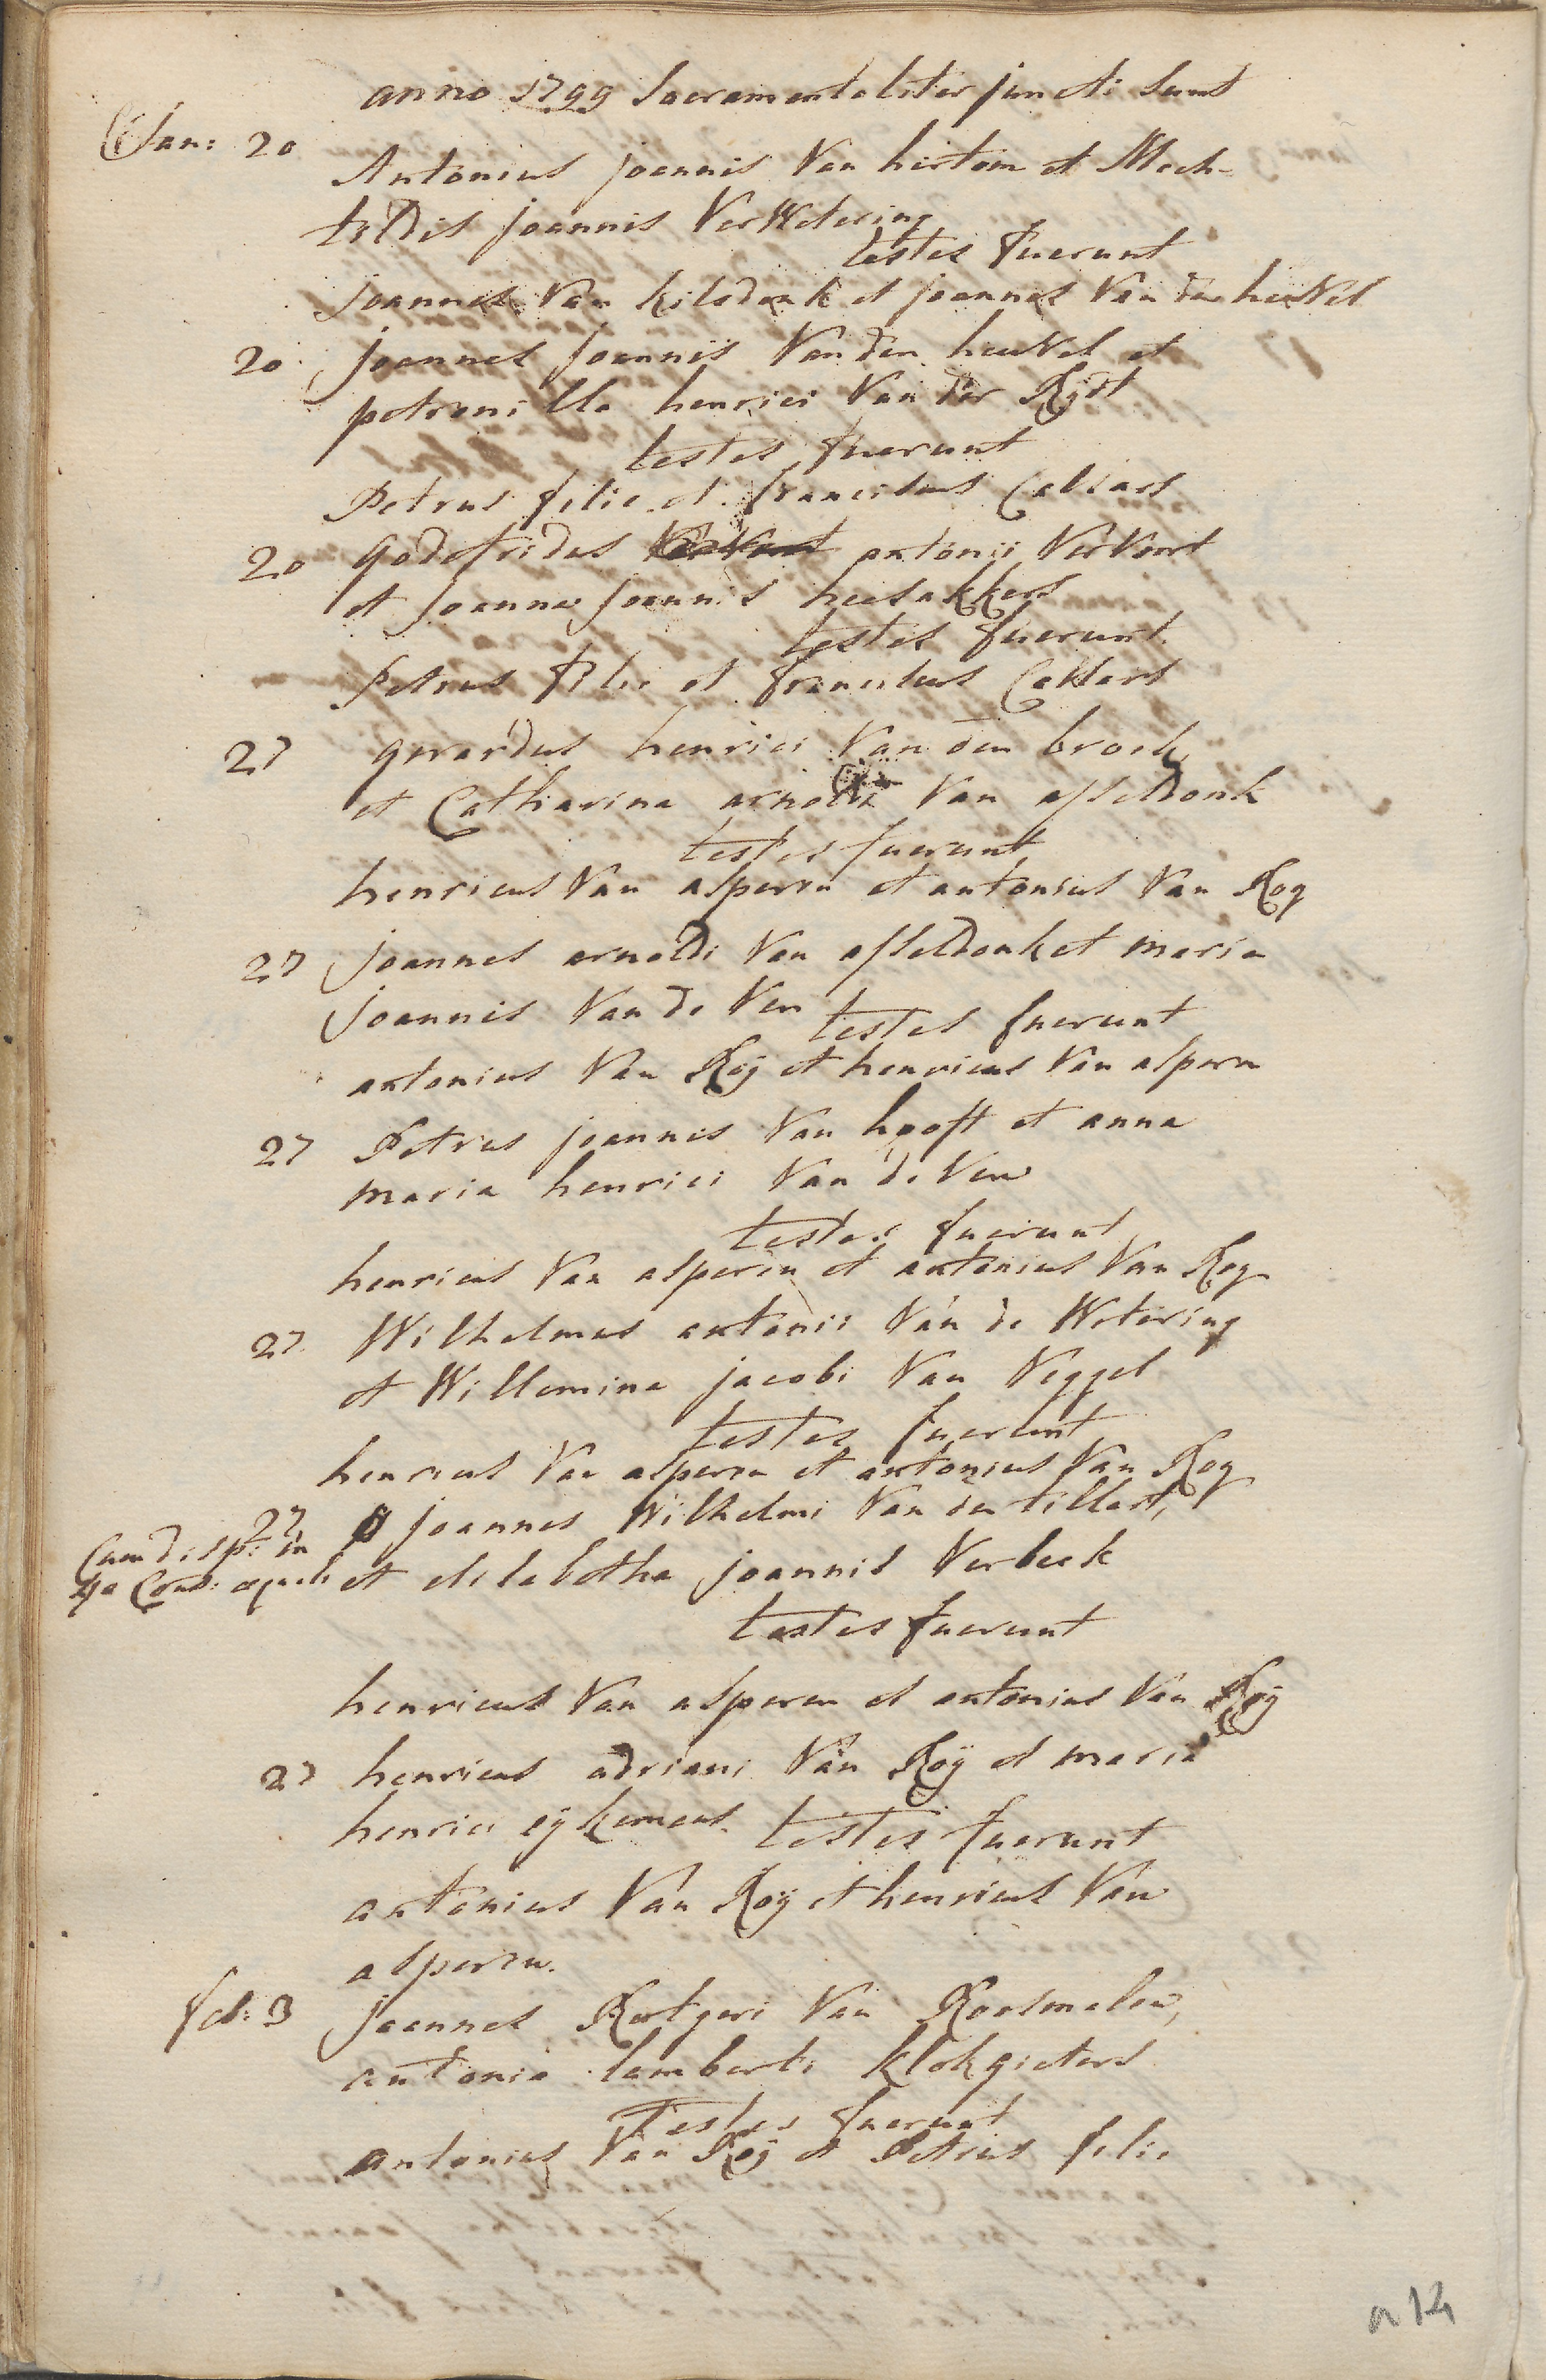 anno 1799 Sacramentaliter juncti sunt
Jan: 20
Antonius joannis Van hirtom et Mech-
tildis joannis VerWetering
testes fuerunt
joannes Van kilsdonk et joannes Van den heuvel
20 joannes joannis Van den heuvel et
petronilla henrici Van der Rijdt
testes fuerunt
Petrus filie et franciscus
20 godefridus antonii Vervoort
et joanna joannis heesakkers
testes fuerunt
Petrus filie et franciscus
27 gerardus henrici Van den broek
et Catharina arnoldi Van asseldonk
testes fuerunt
henricus Van asperen et antonius Van Roy
27 joannes arnoldi Van asseldonk et maria
joannis Van de Ven testes fuerunt
antonius Van Roij et henricus Van asperen
27 Petrus joannis Van hooft et anna
maria henrici Van de Ven
testes fuerunt
henricus Van asperen et antonius Van Roy
27 Wilhelmus antonii Van de Wetering
et Willemina jacobi Van Veggel
testes fuerunt
henricus Van asperen et antonius Van Roy
27 joannes Wilhelmi Van den tillart,
Cum disp: in
4o Cons: aequali et elisabetha joannis Verbeek
testes fuerunt
henricus Van asperen et antonius Van Roij
27 henricus adriani Van Roij et maria
henrici eijkemans testes fuerunt
antonius Van Roij et henricus Van
asperen.
feb: 3 joannes Rutgeri Van Roosmalen,
antonia lamberti klokgieters
Testes fuerunt
antonius Van Roij et Petrus filie
a 14